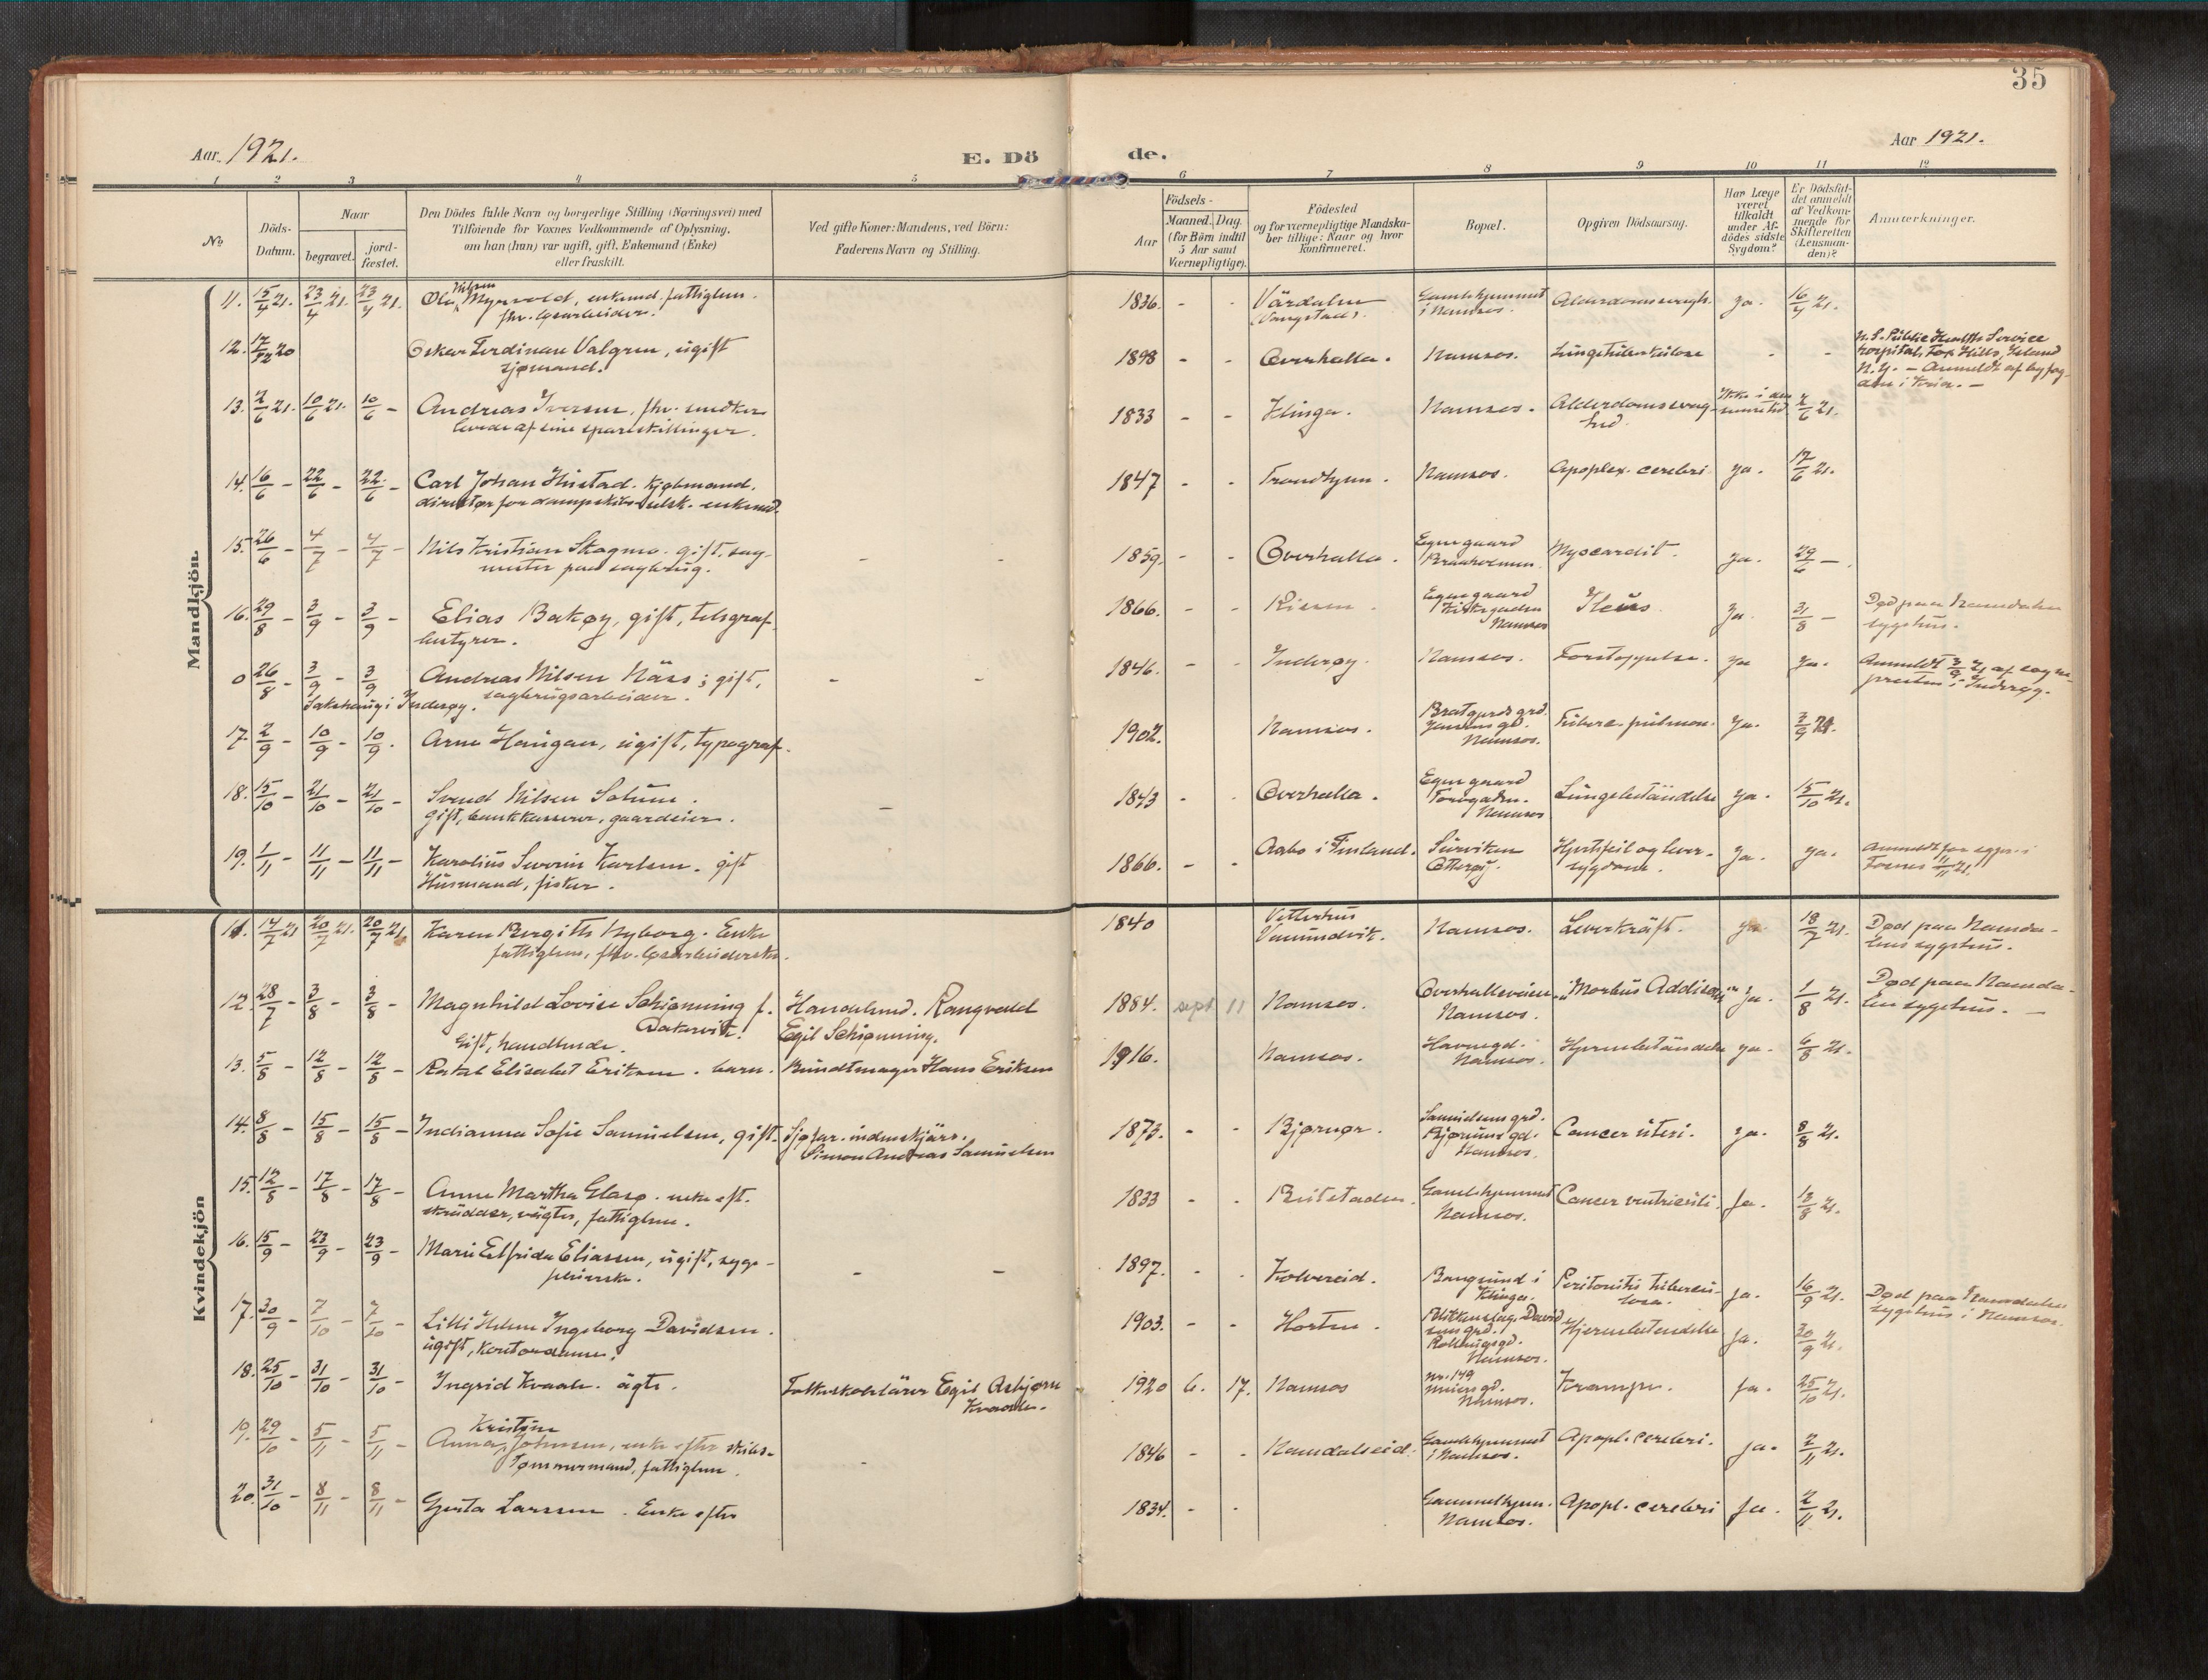 35
Aar 1921.
E. Dö
de.
Aar 1921.
1 2 3 4 5 6 7 8 9 10 11 12
No
Döds-
Datum.
Naar
begravet.
jord-
fæstet.
Den Dödes fulde Navn og borgerlige Stilling (Næringsvei) med
Tilföiende for Voxnes Vedkommende af Oplysning,
om han (hun) var ugift, gift, Enkemand (Enke)
eller fraskilt.
Ved gifte Koner: Mandens, ved Börn:
Faderens Navn og Stilling.
Födsels-
Aar
Maaned. Dag.
(for Börn indtil
5 Aar samt
Værnepligtige).
Födested
og for værnepligtige Mandska-
ber tillige: Naar og hvor
konfirmeret.
Bopæl.
Opgiven Dödsaarsag.
Har Læge
været
tilkaldt
under Af-
dödes sidste
Sygdom?
Er Dödsfal-
det anmeldt
af Vedkom-
mende for
Skifteretten
(Lensman-
den)?
Anmærkninger.
Mandkjön.
11. 15/4 21. 23/4 21. 23/4 21. Ole Nilsen Myrvold, enkemd. fattiglem.
fhv. løsarbeider.
1836. - - Värdalen
(Vangstad).
Gamlehjemmet
i Namsos.
Alderdomssvagh. ja. 16/4 21.
12. 17/12 20 Oskar Ferdinan Valgren, ugift
sjømand.
1898 - - Overhalla. Namsos. Lungetuberkulose - -
U.S. Public Health Service
hospital, Fox Hills, Island
N.Y. - Anmeldt af byfog-
den i
13. 2/6 21. 10/6 21. 10/6 - Andreas Iversen, fhv. snedker
levede af sine spareskillinger.
1833 - - Klinga. Namsos. Alderdomssvag-
hed.
Ikke i den
senere tid
2/6 21.
14. 16/6 - 22/6 - 22/6 - Carl Johan Hustad. Kjøbmand.
direktør for dampskibsselsk. enkemd.
1847 - - Trondhjem. Namsos. Apoplex. cerebri ja. 17/6 21.
15. 26/6 - 4/7 - 4/7 - Nils Kristian Skogmo. gift. sag-
mester paa sagbrug.
- -
1859. - - Overhalla. Egen gaard
Braaholmen.
Myocardit. ja. 29/6 -.
16. 29/8 - 3/9 - 3/9 - Elias Bakøy, gift, telegraf-
bestyrer.
1866. - - Rissen. Egen gaard
Kirkegaden
Namsos
Ileus ja. 31/8 -
Død paa Namdalen
sygehus.
0 26/8 - 3/9 - 3/9 Andreas Nilsen Näss; gift,
sagbrugsarbeider.
Sakshaug i Inderøy.
- -
1846. - - Inderøy. Namsos. Forstoppelse. ja ja.
Anmeldt 3/9 21 af sogne-
presten i Inderøy.
17. 2/9 - 10/9 - 10/9. Arne Haugan, ugift, typograf.
1902. Namsos.
Namsos.
Tuberc. pulmon. ja. 3/9 21.
18. 15/10 - 21/10 - 21/10 - Svend Nilsen Solum.
gift, bankkasserer, gaardeier.
-
1843 - - Overhalla. Egen gaard
Torvgaden.
Namsos
Lungebetändelse ja. 15/10 21.
19. 1/11 - 11/11 - 11/11 - Karolius Severin Karlsen. gift
Husmand, fisker.
1866. - - Aabo i Finland. Surviken
Otterøy.
Hjertefeil og lever-
sygdom.
ja. ja.
Anmeldt for sgpr. i
Fosnes 11/11 21.
Kvindekjön
11. 14/7 21 20/7 21. 20/7 21. Karen Bergitte Nyborg. Enke
fattiglem, fhv. løsarbeiderske.
1840 Vetterhus
Vemundvik.
Namsos. Leverkräft. ja. 18/7 21.
Død paa Namda-
lens sygehus.
12. 28/7 - 3/8 - 3/8 - Magnhild Lovise Schiønning f.
Dakarvik.
Gift, handlende.
Handelsmd. Rangvald
Egil Schiønning.
1884. sept 11 Namsos. Overhallsveien
Namsos.
"Morbus Addisoni" ja. 1/8 21.
Død paa Namda-
len sygehus. -
13. 5/8 - 12/8 - 12/8 - Rakel Elisabet Eriksen. barn. Bundtmager Hans Eriksen
1916. Namsos. Havnegd.
Namsos.
Hjernebetändelse ja. 6/8 21.
14. 8/8 - 15/8 - 15/8 - Indianna Sofie Samuelsen, gift. Sjøfar. indenskjärs.
Simon Andreas Samuelsen
1873. - - Bjørnør. Samuelsens grd.
Bjørums gd.
Namsos.
Cancer uteri. ja. 8/8 21.
15. 12/8 - 17/8 - 17/8 - Anne Martha Glasø. enke eft.
skrädder, vägter, fattiglem.
1833 - - Beitstaden. Gamlehjemmet
Namsos.
Cancer ventriculi. ja. 12/8 21.
16. 15/9 - 23/9 - 23/9 - Marie Elfrida Eliassen, ugift, syge-
pleierske.
- -
1897. - - Kolvereid. Bangsund i
Klinga.
Peritonitis tubercu-
losa.
ja. 16/9 21.
Død paa Namdalen
sygehus i Namsos.
17. 30/9 - 7/10 - 7/10 - Lilli Helene Ingeborg Davidsen.
ugift, kontordame.
1903. - - Horten. Blikkenslag. David-
sens grd.
Namsos.
Hjernebetendelse ja. 30/9 21.
18. 25/10 - 31/10 - 31/10 - Ingrid Kvaale. ägte. Folkeskolelärer Egil Asbjørn
Kvaale.
1920 6. 17. Namsos nr. 149
meiers gd.
Namsos.
Krampe. ja. 25/10 21.
19. 29/10 - 5/11 - 5/11 - Anna Kristine Johnsen, enke efter skibs-
tømmermand, fattiglem.
-
1846 - - Namdalseid. Gamlehjemmet
i Namsos.
Apopl. cerebri. ja. 2/11 21.
20. 31/10 - 8/11 - 8/11 - Gurta Larssen. Enke efter
1834. - - Gammelhjem.
Namsos.
Apopl. cerebri ja. 2/11 21.